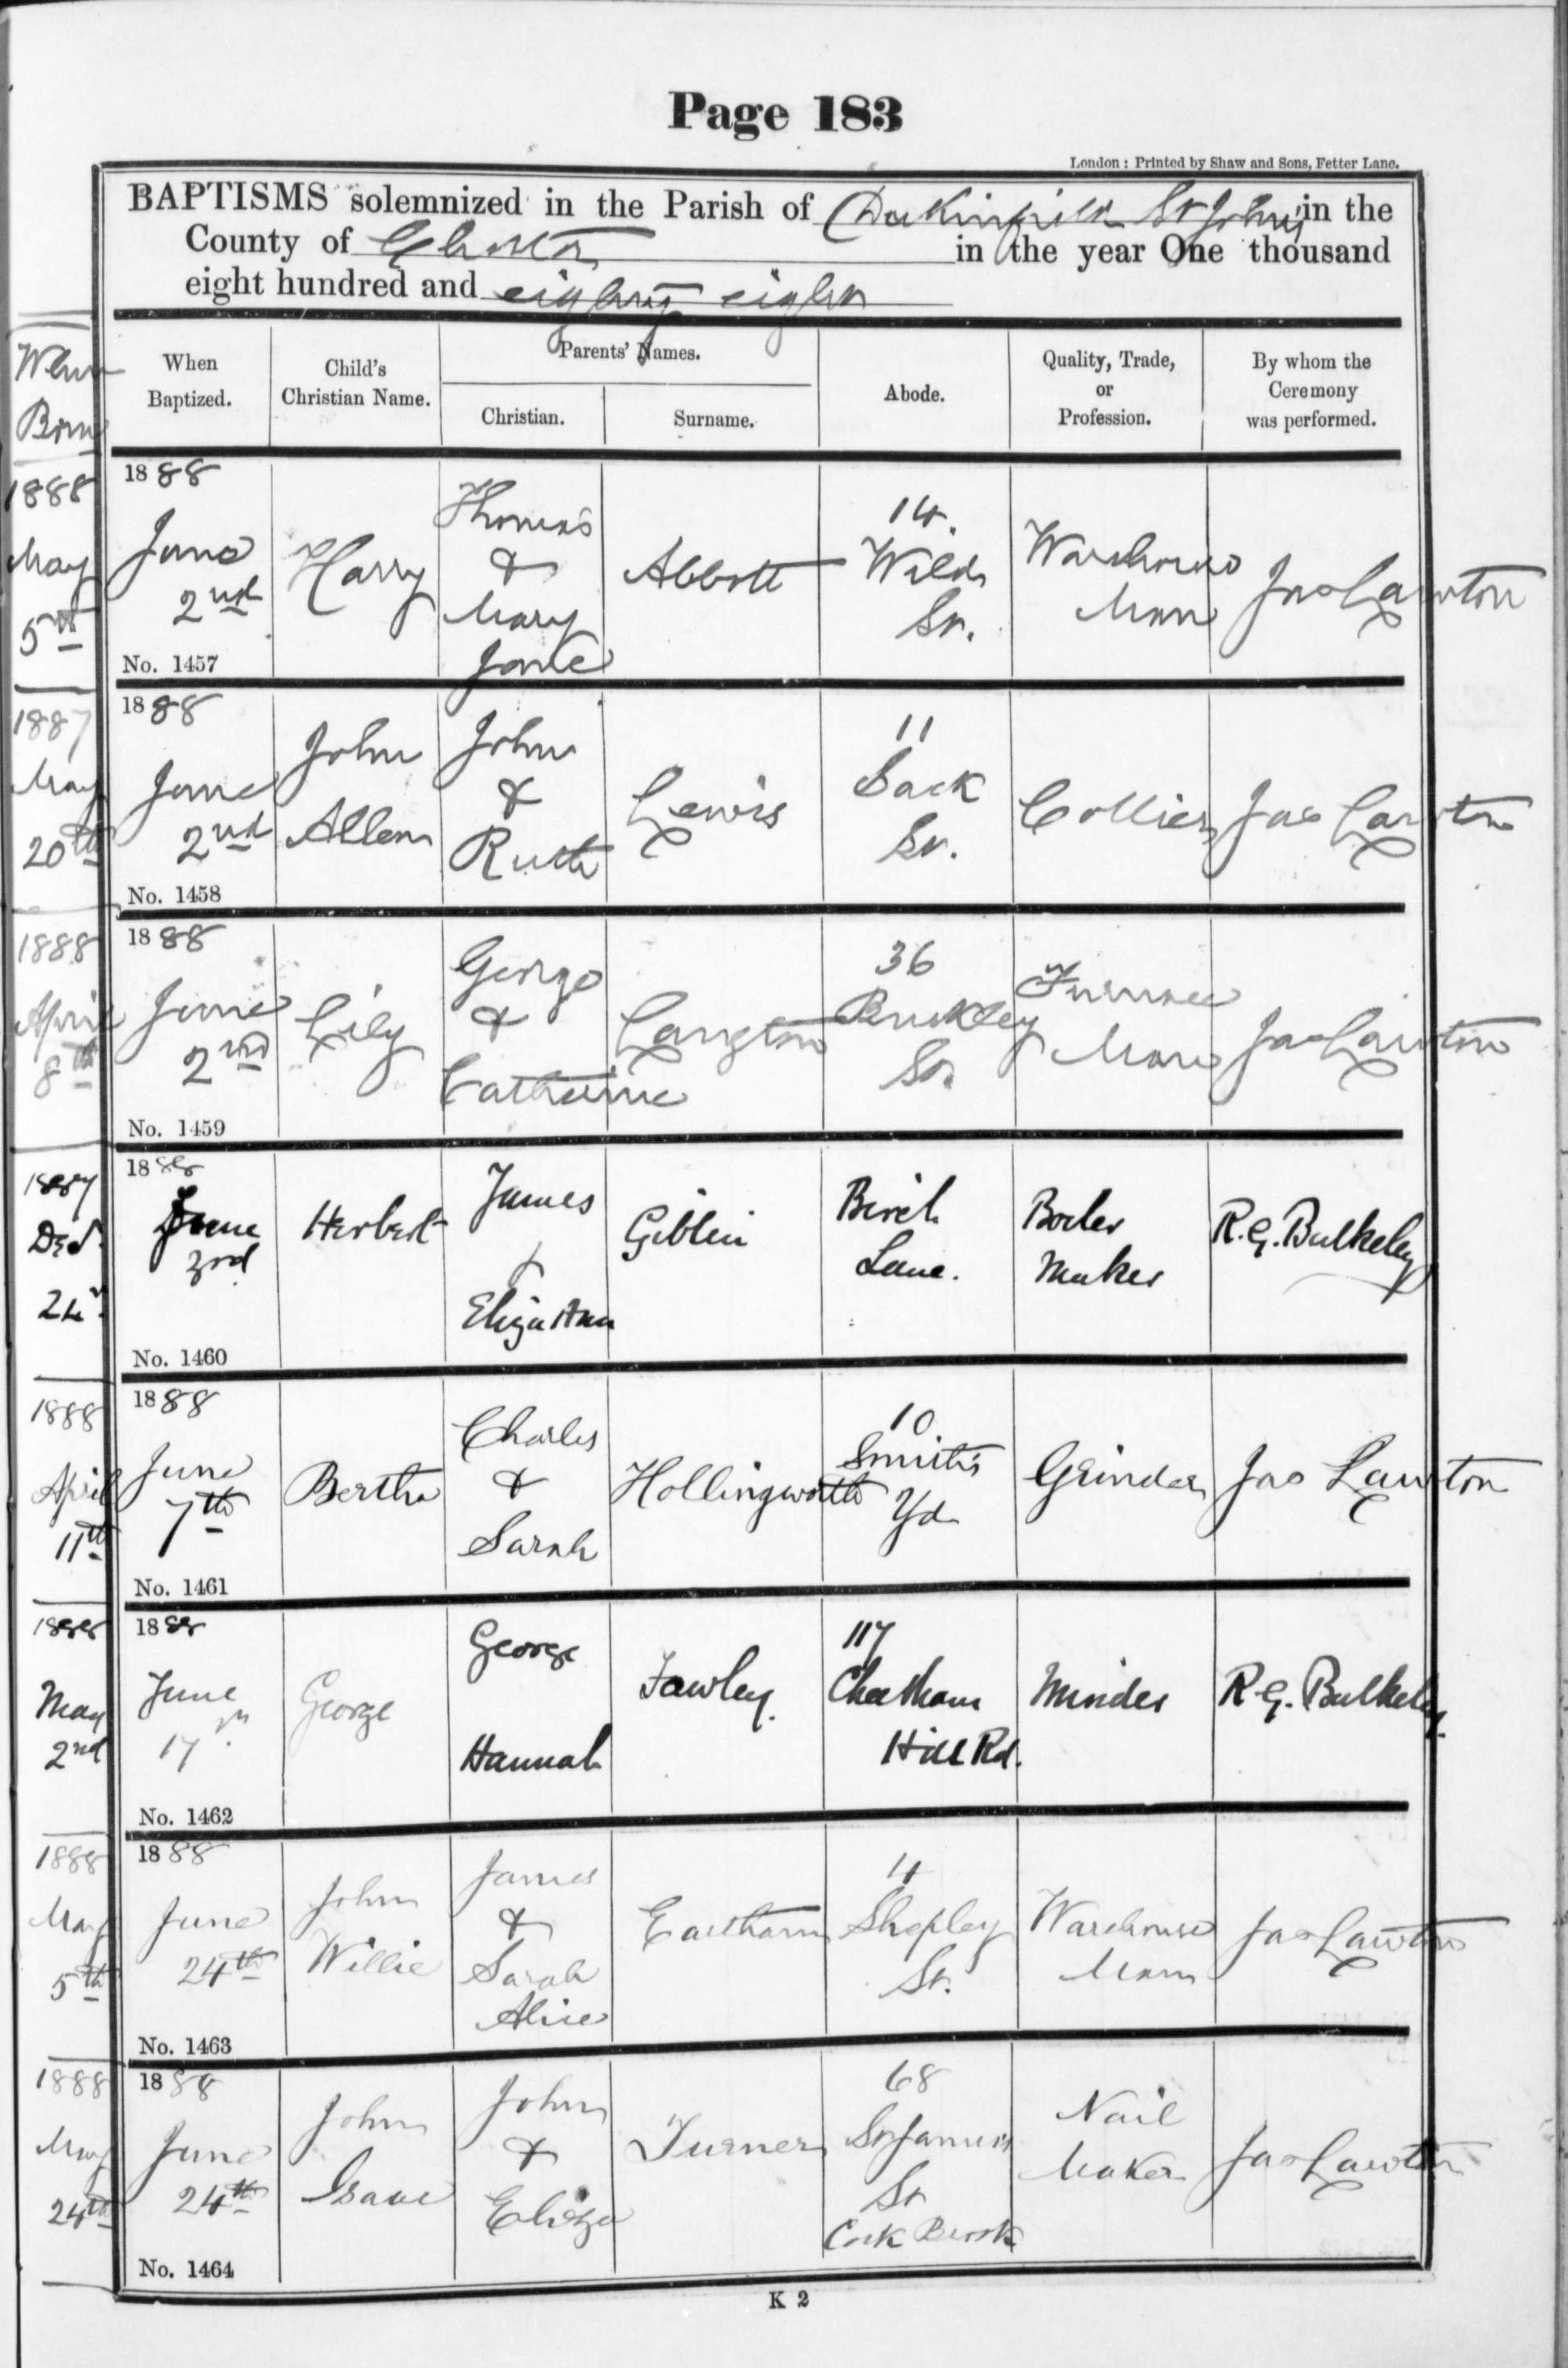 Page 183
London: Printed by Shaw and Sons, Fetter Lane.
BAPTISMS solemnized in the Parish of Dukinfield St John's in the
County of Chester in the year One thousand
eight hundred and eighty eight
When Born
When Baptized.
Child's Christian Name.
Parents' Names.
Christian.
Surname.
Abode.
Quality, Trade, or Profession.
By whom the Ceremony was performed.
1888 May 5th
1888 June 2nd
Harry
Thomas & Mary Jane
Abbott
14. Wild St.
Warehouse Man
Jas Lawton
No. 1457
1887 May 20th
1888 June 2nd
John Allen
John & Ruth
Lewis
11 Back St.
Collier
Jas Lawton
No. 1458
1888 April 8th
1888 June 2nd
Lily
George & Catherine
Langton
36 St.
Furnace Man
Jas Lawton
No. 1459
1887 Dec. 24th
1888 June 3rd
Herbert
James & Eliza Ann
Giblin
Birch Lane.
Boiler Maker
R. G. Bulkeley
No. 1460
1888 April 11th
1888 June 7th
Bertha
Charles & Sarah
Hollingworth
10 Smith's Yd
Grinder
Jas Lawton
No. 1461
1888 May 2nd
1888 June 17th
George
George Hannah
Fawley.
117 Cheetham Hill Rd.
Minder
R. G. Bulkeley.
No. 1462
1888 May 5th
1888 June 24th
John Willie
James & Sarah Alice
Eastham
Shepley St.
Warehouse Man
Jas Lawton
No. 1463
1888 May 24th
1888 June 24th
John Isaac
John & Eliza
Turner
68 St James's St Cock Brook
Nail Maker
Jas Lawton
No. 1464
K 2